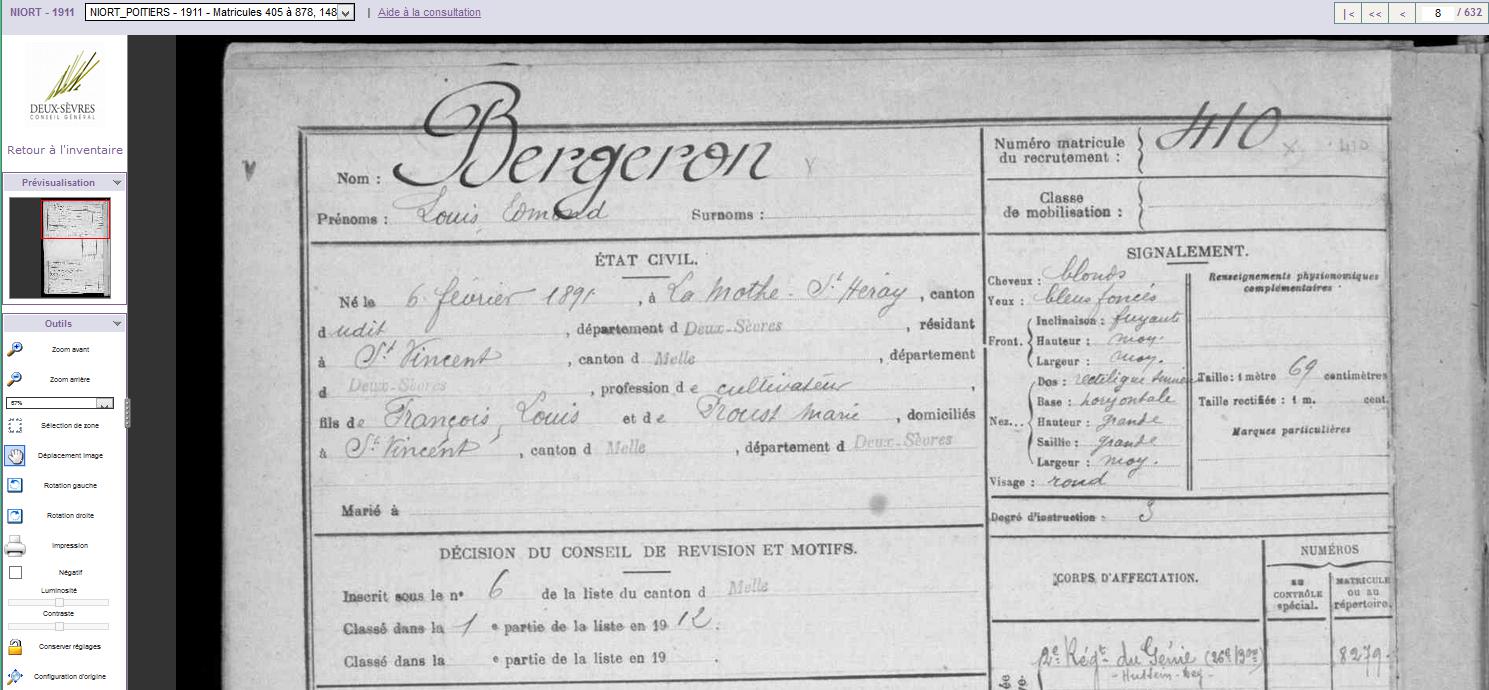 NIORT - 1911
NIORT_POITIERS - 1911 - Matricules 405 à 878, 148
| Aide à la consultation
|< << < 8 / 632
DEUX-SÈVRES
CONSEIL GÉNÉRAL
Retour à l'inventaire
Prévisualisation
Outils
Zoom avant
Zoom arrière
67%
Sélection de zone
Déplacement image
Rotation gauche
Rotation droite
Impression
Négatif
Luminosité
Contraste
Conserver réglages
Configuration d'origine
Nom : Bergeron
Prénoms : Louis Edmond Surnoms :
ÉTAT CIVIL.
Né le 6 février 1891, à La Mothe-St Héray, canton
dudit, département d Deux-Sèvres, résidant
à St Vincent, canton d Melle, département
d Deux-Sèvres, profession de cultivateur,
fils de François, Louis et de Proust Marie, domiciliés
à St Vincent, canton d Melle, département d Deux-Sèvres
Marié à
DÉCISION DU CONSEIL DE REVISION ET MOTIFS.
Inscrit sous le n° 6 de la liste du canton d Melle
Classé dans la 1e partie de la liste en 1912.
Classé dans la e partie de la liste en 19 .
Numéro matricule
du recrutement : 410 x 410
Classe
de mobilisation :
SIGNALEMENT.
Cheveux : blonds
Yeux : bleus foncés
Front. Inclinaison : fuyante
Hauteur : moy.
Largeur : moy.
Nez... Dos : rectiligne
Base : horizontale
Hauteur : grande
Saillie : grande
Largeur : moy.
Visage : rond
Renseignements physionomiques
complémentaires :
Taille : 1 mètre 69 centimètres
Taille rectifiée : 1 m. cent.
Marques particulières
Degré d'instruction : 3
CORPS D'AFFECTATION.
NUMÉROS
au
CONTRÔLE
spécial.
MATRICULE
ou au
répertoire.
2e Régt du Génie (26e/3) 8279
- Hussein-Dey -